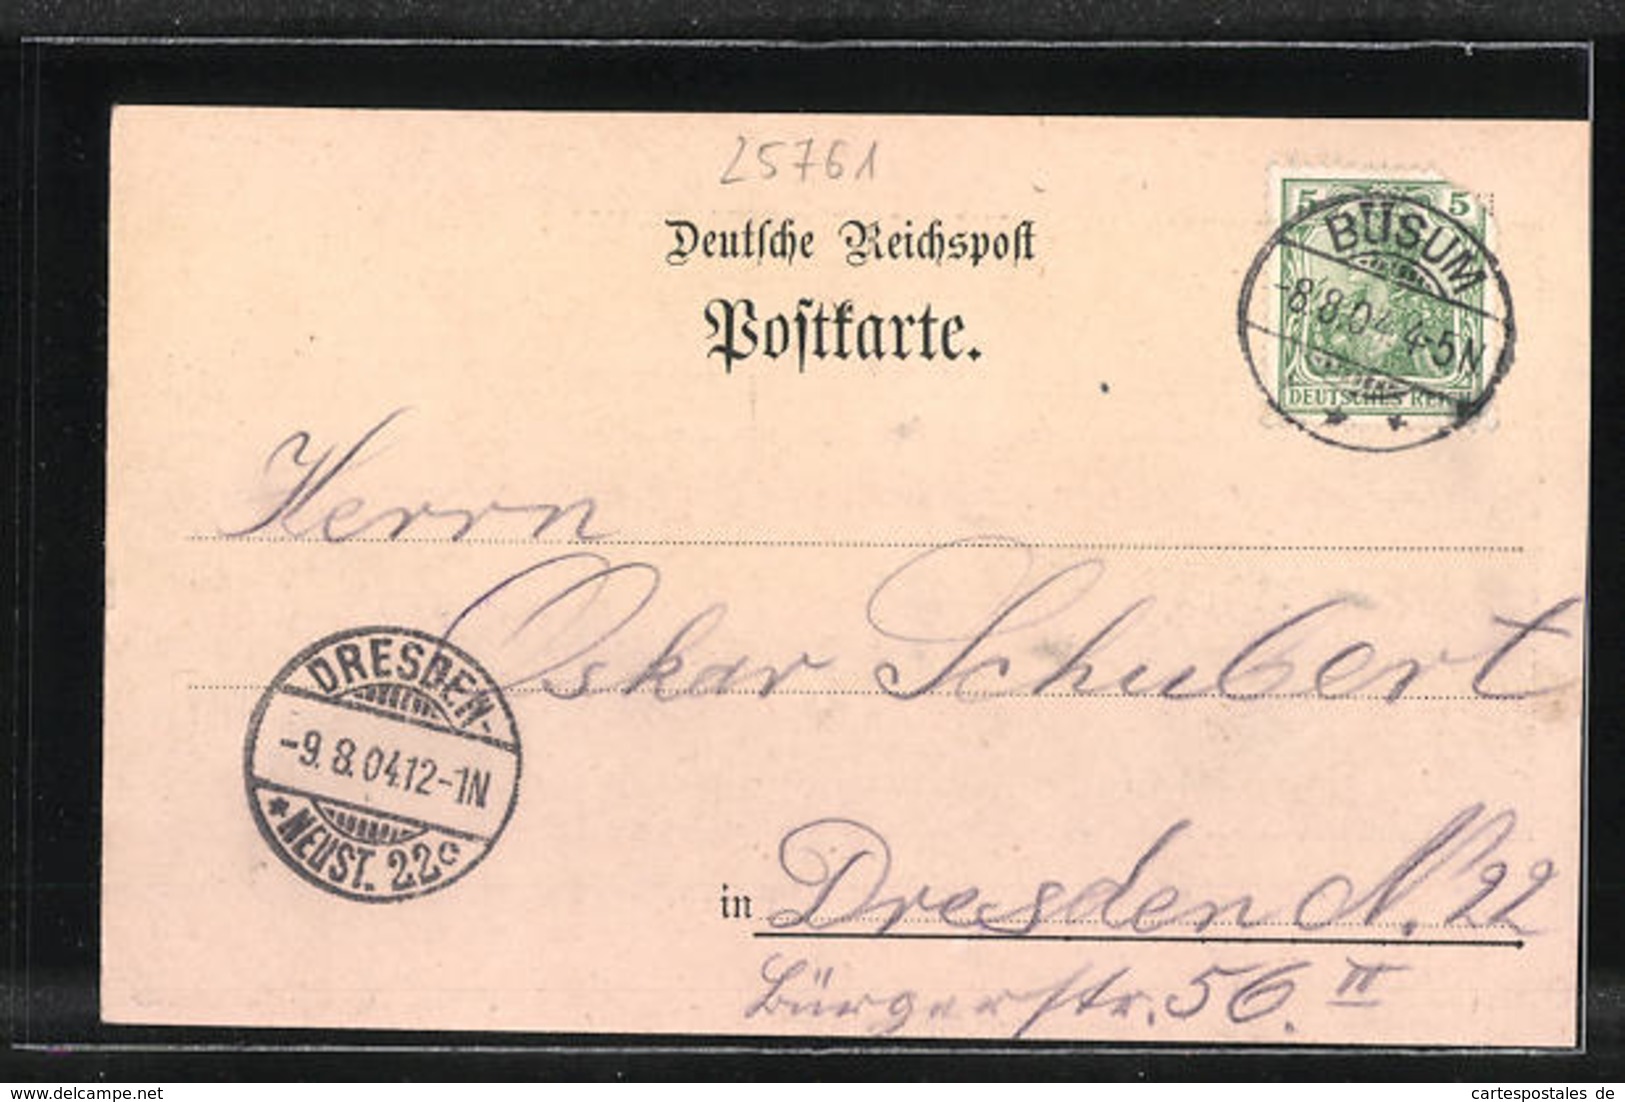 25761
Deutsche Reichspost
Postkarte.
5 5
BÜSUM
-8.8.04. 4-5N
DEUTSCHES REICH
Herrn
Oskar Schubert
DRESDEN-
-9.8.04.12-1N
* NEUST. 22c
in Dresden N. 22
Bürgerstr. 56. II
www.cartespostales.com
cartespostales de